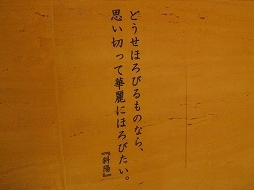 どうせほろびるものなら、
思い切って華麗にほろびたい。
『斜陽』